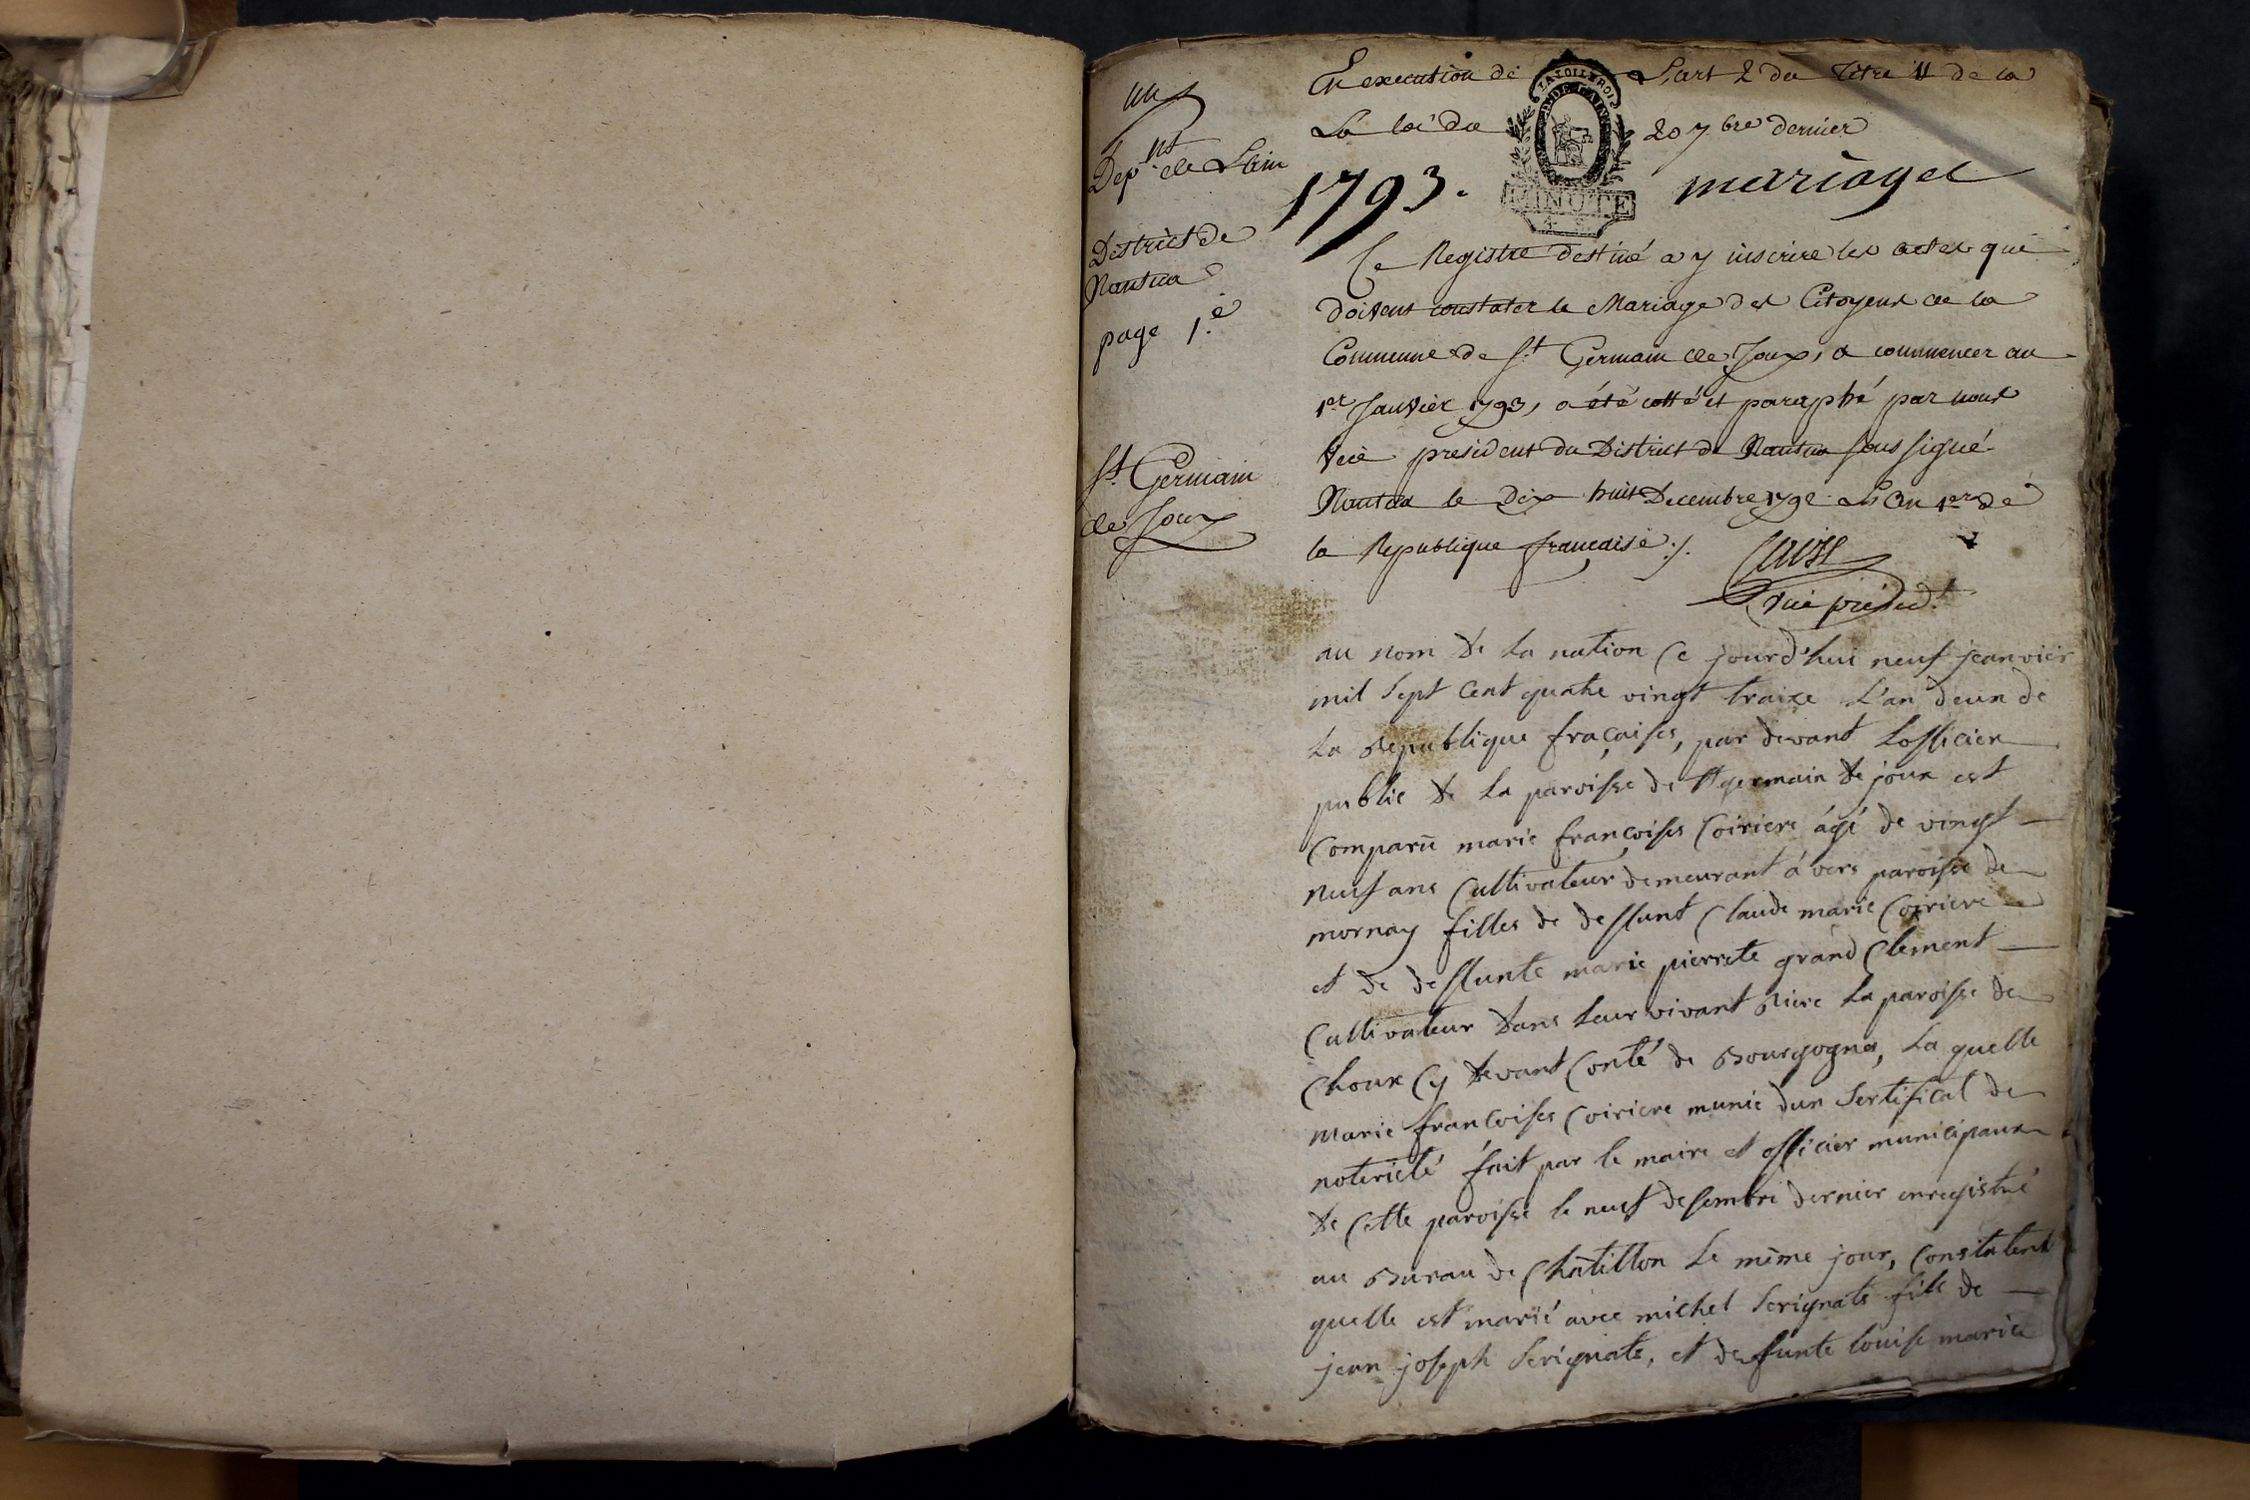 un
Dep.nt de Lain
District de
Nantua
page 1.e
St. Germain
de Joux
En execution de Lart 2 du titre 11 de la
La loi du 20 7bre dernier
LA LOI LE ROI
DE L'AIN
MINUTE
1793. mariages
Ce Registre destiné a y inscrire les actes qui
doivent constater le Mariage des Citoyens de la
Commune de St. Germain de Joux, a commencer au
1er Janvier 1793, a été cotté et paraphé par nous
vice president du District de Nantua sous signé
Nantua le dix huit Decembre 1792 L'an 1er de
la Republique françaisè ./.
vice présid.t
au nom de la nation Ce jourd'hui neuf jeanvier
mil sept Cent quatre vingt traixe L'an deun de
La Republique fraçaises, par devant Lofficier
public de La paroisse de St germain de joux est
Comparu marie françoises Coiriere ágé de vingt
neuf ans Cultivateur demeurant á vers paroisse de
mornay filles de deffunt Claude marie Coiriere
et de deffunte marie pierrete grand Clement
Cultivateur dans leur vivant Riere La paroisse de
Choux Cy devant Conté de Bourgognes, La quelle
Marie françoises Coiriere munie dun Sertifical de
noterieté fait par le maire et officier municipaux
de Cette paroisse le neuf desembre dernier enregistré
au Bureau de Châtillon Le même jour, Constatent
quelle est marié avec michel Serignate fils de
jean joseph Serignate, et defunte louise marie